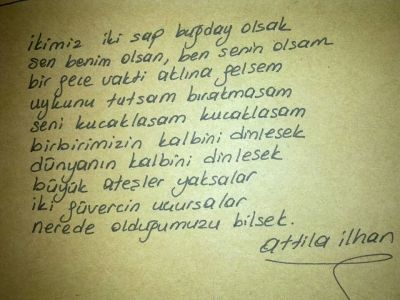 ikimiz iki sap buğday olsak
sen benim olsan, ben senin olsam
bir gece vakti aklına gelsem
uykunu tutsam bıratmasam
seni kucaklasam kucaklasam
birbirimizin kalbini dinlesek
dünyanın kalbini dinlesek
büyük ateşler yaksalar
iki güvercin uçursalar
nerede olduğumuzu bilsek.
attila ilhan